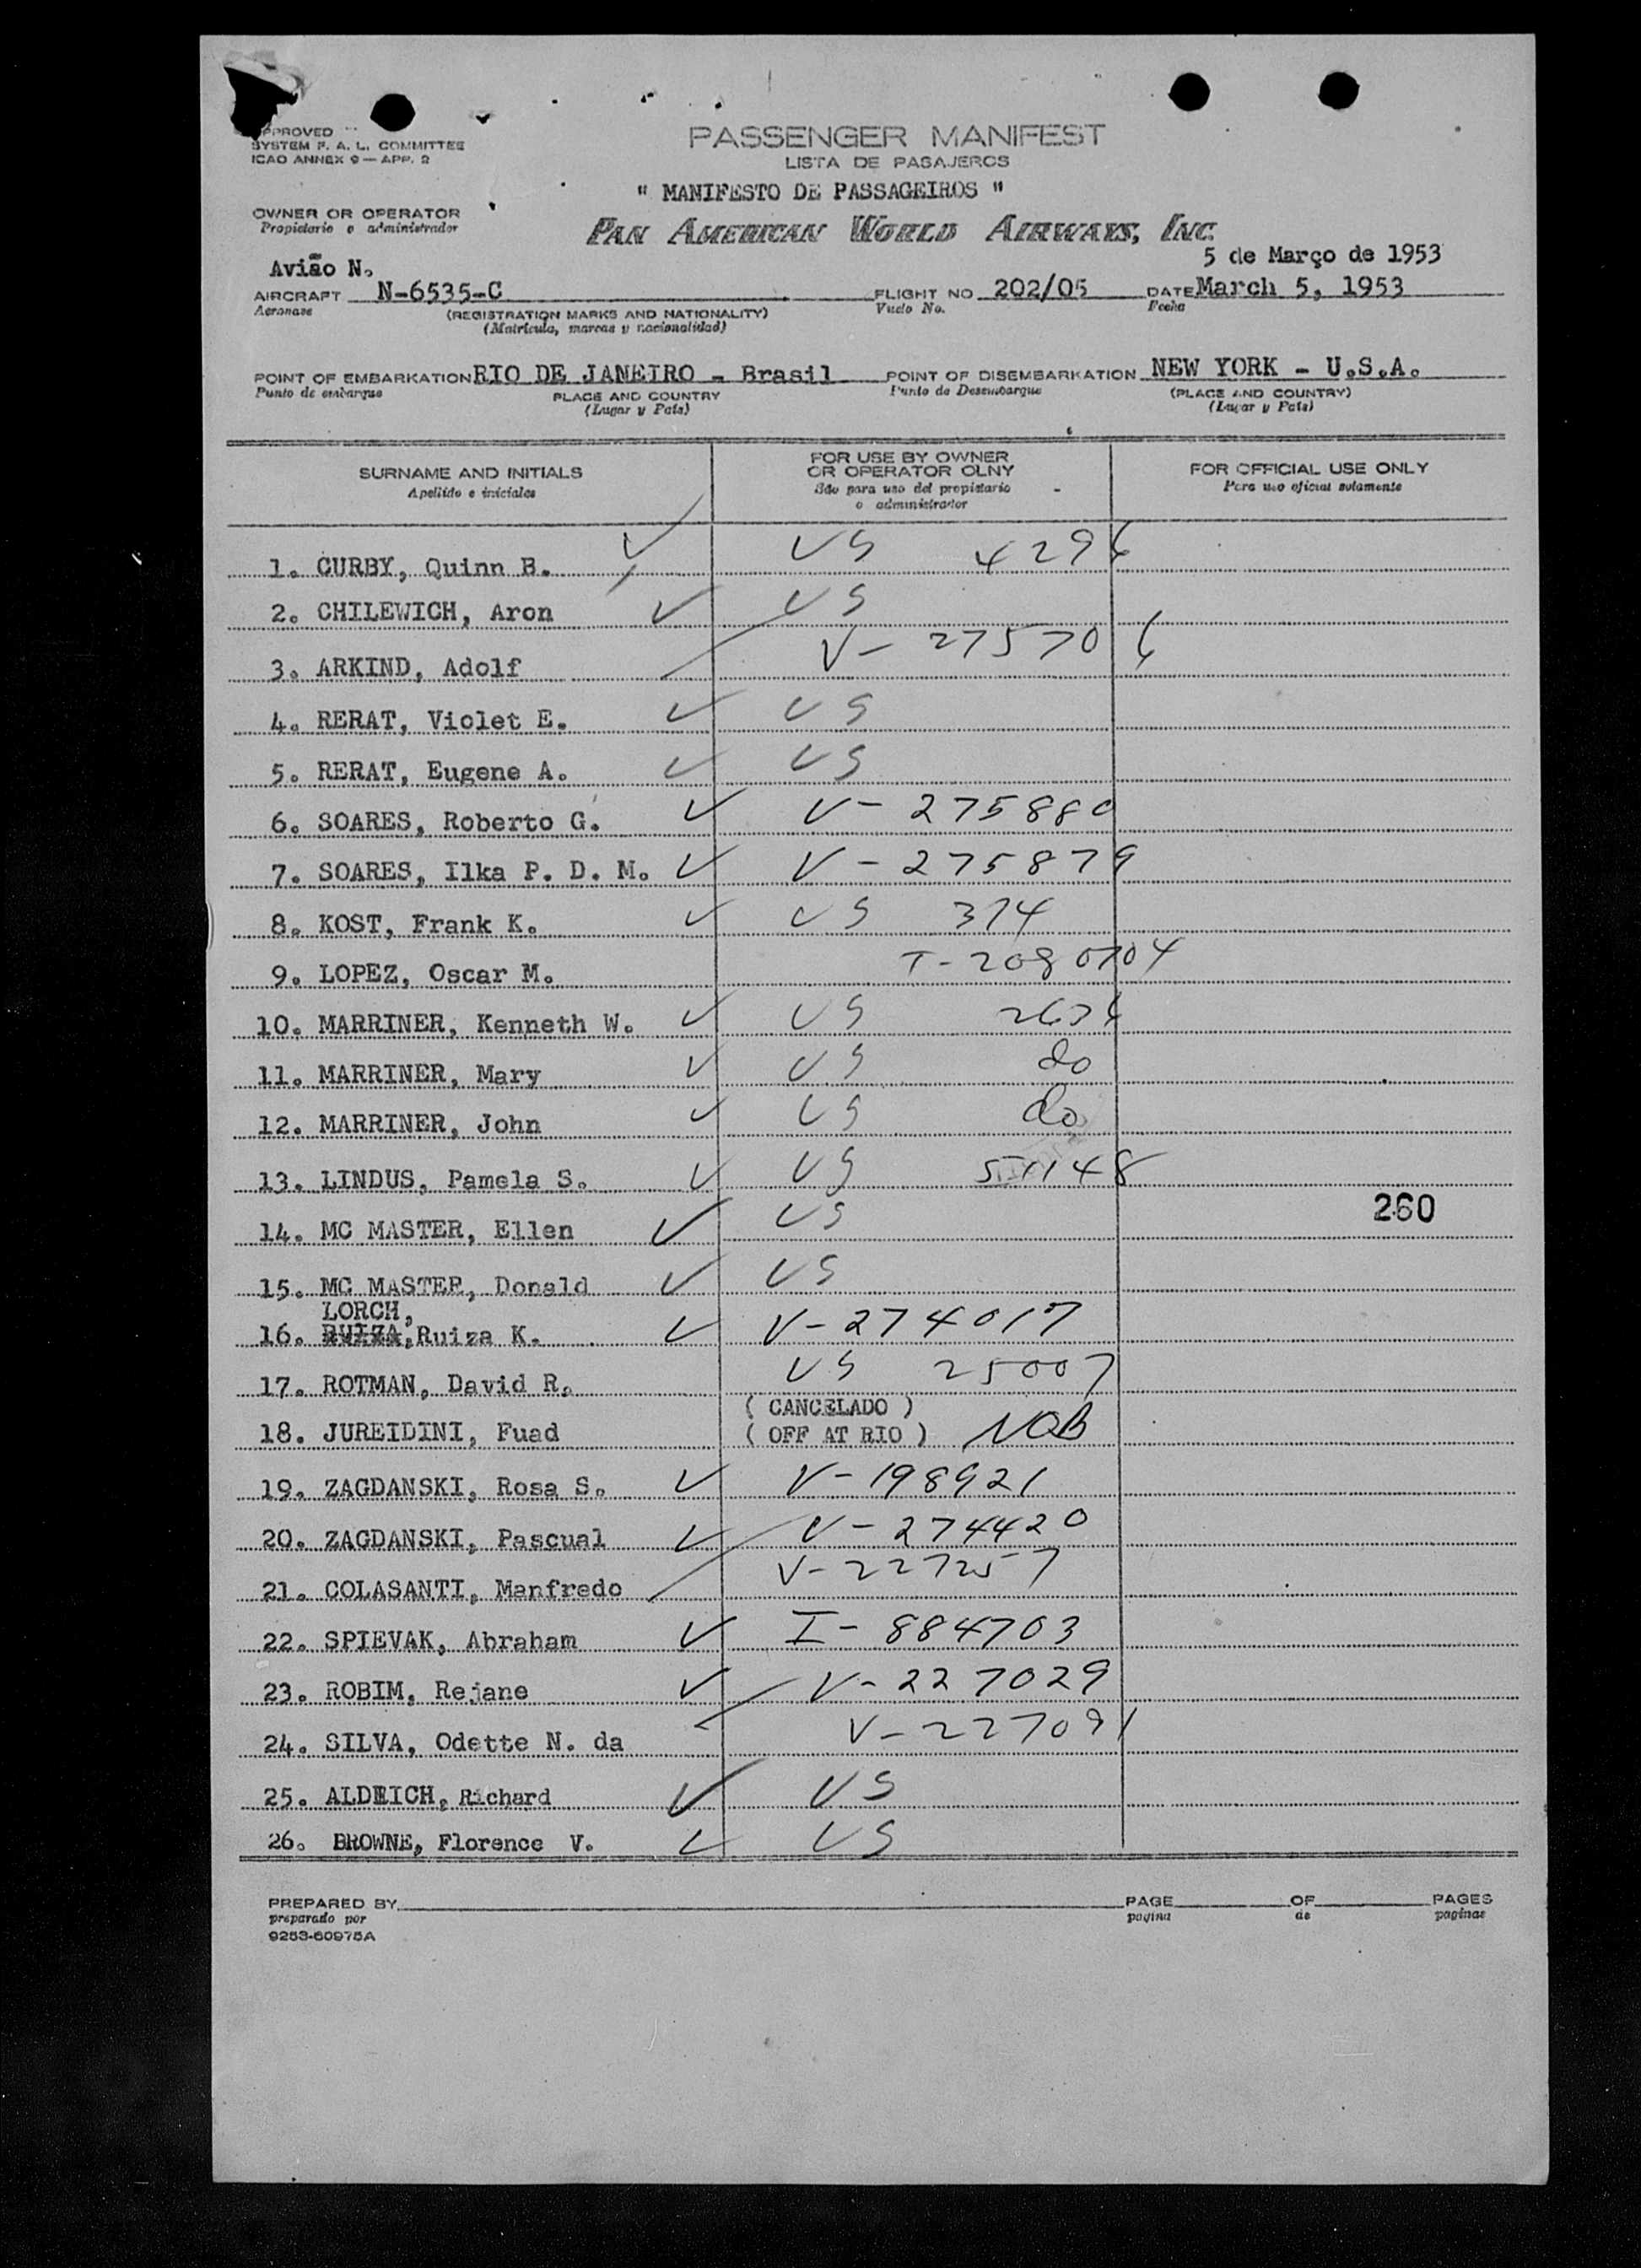 APPROVED
SYSTEM F. A. L. COMMITTEE
ICAO ANNEX 9 — APP. 2
PASSENGER MANIFEST
LISTA DE PASAJEROS
" MANIFESTO DE PASSAGEIROS "
OWNER OR OPERATOR
Propietario o administrador
PAN AMERICAN WORLD AIRWAYS, INC
5 de Março de 1953
Avião N.
AIRCRAFT N-6535-C FLIGHT NO 202/05 DATE March 5, 1953
Aeronave (REGISTRATION MARKS AND NATIONALITY) Vuelo No. Fecha
(Matrícula, marcas y nacionalidad)
POINT OF EMBARKATION RIO DE JANEIRO - Brasil POINT OF DISEMBARKATION NEW YORK - U.S.A.
Punto de embarque PLACE AND COUNTRY Punto de Desembarque (PLACE AND COUNTRY)
(Lugar y País) (Lugar y País)
SURNAME AND INITIALS FOR USE BY OWNER OR OPERATOR OLNY FOR OFFICIAL USE ONLY
Apellido e iniciales Sdo para uso del propietario o administrador Para uso oficial solamente
1. CURBY, Quinn B. US 4296
2. CHILEWICH, Aron US
3. ARKIND, Adolf V- 275706
4. RERAT, Violet E. US
5. RERAT, Eugene A. US
6. SOARES, Roberto G. V- 275880
7. SOARES, Ilka P. D. M. V- 275879
8. KOST, Frank K. US 374
9. LOPEZ, Oscar M. T-2080704
10. MARRINER, Kenneth W. US 2636
11. MARRINER, Mary US do
12. MARRINER, John US do
13. LINDUS, Pamela S. US 51148
14. MC MASTER, Ellen US 260
15. MC MASTER, Donald US
LORCH,
16. RUIZA, Ruiza K. V-274017
17. ROTMAN, David R. US 25007
( CANCELADO )
18. JUREIDINI, Fuad ( OFF AT RIO ) NOB
19. ZAGDANSKI, Rosa S. V-198921
20. ZAGDANSKI, Pascual V-274420
21. COLASANTI, Manfredo V-227257
22. SPIEVAK, Abraham I-884703
23. ROBIM, Rejane V-227029
24. SILVA, Odette N. da V-227091
25. ALDRICH, Richard US
26. BROWNE, Florence V. US
PREPARED BY PAGE OF PAGES
preparado por pagina de paginas
9253-60975A